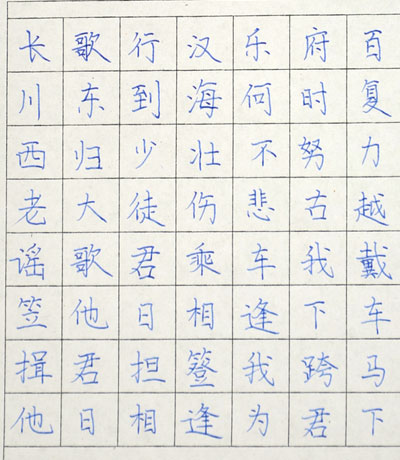 长歌行汉乐府百
川东到海何时复
西归少壮不努力
老大徒伤悲古越
谣歌君乘车我戴
笠他日相逢下车
揖君担簦我跨马
他日相逢为君下